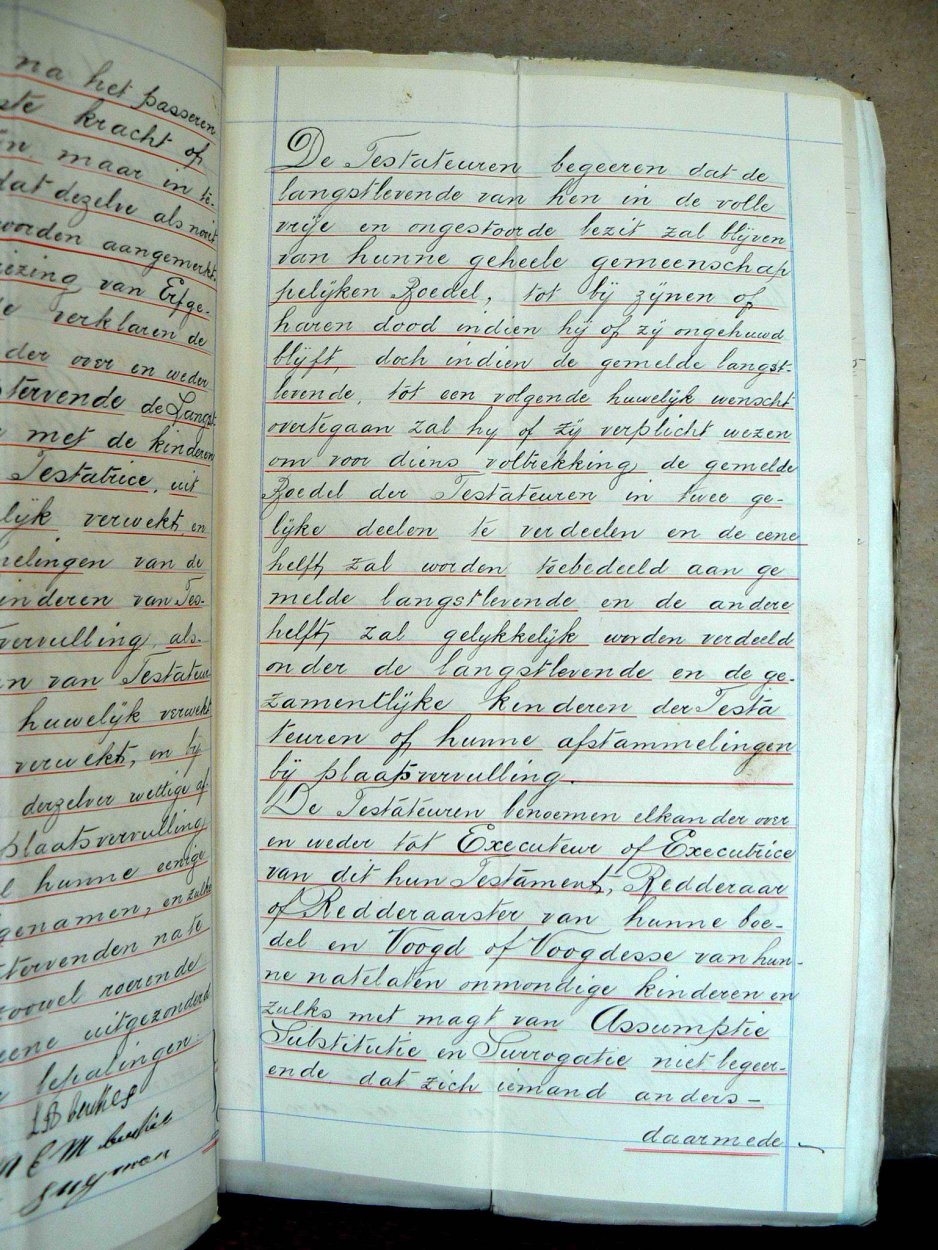 na het passeren
ste kracht of
in maar in te-
dat dezelve als nooit
worden aangemerkt.
iezing van Erfge-
e verklaren de
der over en weder
stervende de Langst
met de kinderen
Testatrice, uit
lijk verwekt, en
melingen van de
inderen van Tes-
vervulling, als-
n van Testateur
huwelijk verwekt
verwekt, en bij
derzelver wettige af-
plaatsvervulling
l hunne eenige
genamen, en zulks
stervenden nate
zoowel roerende
eene uitgezonderd
bepalingen:
De Testateuren begeeren dat de
langstlevende van hen in de volle
vrije en ongestoorde bezit zal blijven
van hunne geheele gemeenschap
pelijken Boedel, tot bij zijnen of
haren dood indien hij of zij ongehuwd
blijft, doch indien de gemelde langst-
levende, tot een volgende huwelijk wenscht
overtegaan zal hij of zij verplicht wezen
om voor diens voltrekking de gemelde
Boedel der Testateuren in twee ge-
lijke deelen te verdeelen en de eene
helft zal worden toebedeeld aan ge
melde langstlevende en de andere
helft zal gelijkkelijk worden verdeeld
onder de langstlevende en de ge-
zamentlijke kinderen der Testa
teuren of hunne afstammelingen
bij plaatsvervulling.
De Testateuren benoemen elkander over
en weder tot Executeur of Executrice
van dit hun Testament, Redderaar
of Redderaarster van hunne boe-
del en Voogd of Voogdesse van hun-
ne natelaten onmondige kinderen en
zulks met magt van Assumptie
Substitutie en Surrogatie niet begeer-
ende dat zich iemand anders-
daarmede